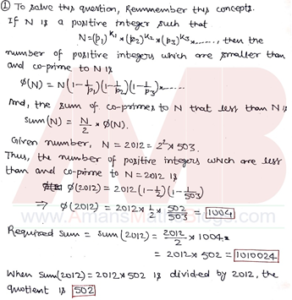 ① To solve this question, Remember this concept:
If N is a positive integer such that
N=(p₁)^k₁ * (p₂)^k₂ * (p₃)^k₃ *......, then the
number of positive integers which are smaller than
and co-prime to N is
ϕ(N) = N(1-1/p₁)(1-1/p₂)(1-1/p₃)*......
And, the sum of co-primes to N that less than N is
Sum(N) = N/2 * ϕ(N).
Given number, N = 2012 = 2² * 503.
Thus, the number of positive integers which are less
than and co-prime to N=2012 is
ϕ(2012) = 2012(1-1/2)(1-1/503)
⇒ ϕ(2012) = 2012 * 1/2 * 502/503 = 1004
Required sum = sum(2012) = 2012/2 * 1004
= 2012 * 502 = 1010024
When sum(2012) = 2012 * 502 is divided by 2012, the
quotient is 502